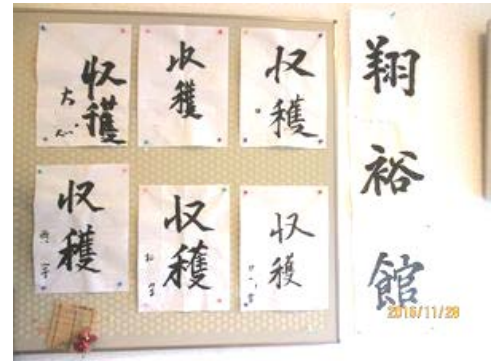 収穫
収穫
収穫
収穫
収穫
収穫
翔裕館
2016/11/28